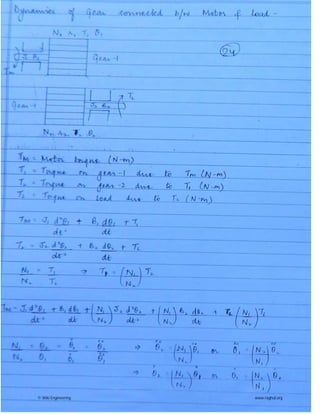 Dynamics of Gear connected b/w Motor & load -
N₁ r₁ T₁ θ₁
24
J₁ B₁
Gear-1
Tm
T_L
Gear-1
J₂ B₂
N₂ r₂ T₂ θ₂
Tm = Motor torque (N-m)
T₁ = Torque on gear-1 due to Tm (N-m)
T₂ = Torque on gear-2 due to T₁ (N-m)
T_L = Torque on load due to T₂ (N-m)
Tm = J₁ d²θ₁/dt² + B₁ dθ₁/dt + T₁
T₂ = J₂ d²θ₂/dt² + B₂ dθ₂/dt + T_L
N₁/N₂ = T₁/T₂ ⇒ T₁ = (N₁/N₂) T₂
Tm = J₁ d²θ₁/dt² + B₁ dθ₁/dt + (N₁/N₂) J₂ d²θ₂/dt² + (N₁/N₂) B₂ dθ₂/dt + (N₁/N₂) T_L
N₁/N₂ = θ₂/θ₁ = θ̇₂/θ̇₁ = θ̈₂/θ̈₁ ⇒ θ̈₂ = (N₁/N₂) θ̈₁ or θ̈₁ = (N₂/N₁) θ̈₂
⇒ θ̇₂ = (N₁/N₂) θ̇₁ or θ̇₁ = (N₂/N₁) θ̇₂
www.raghul.org